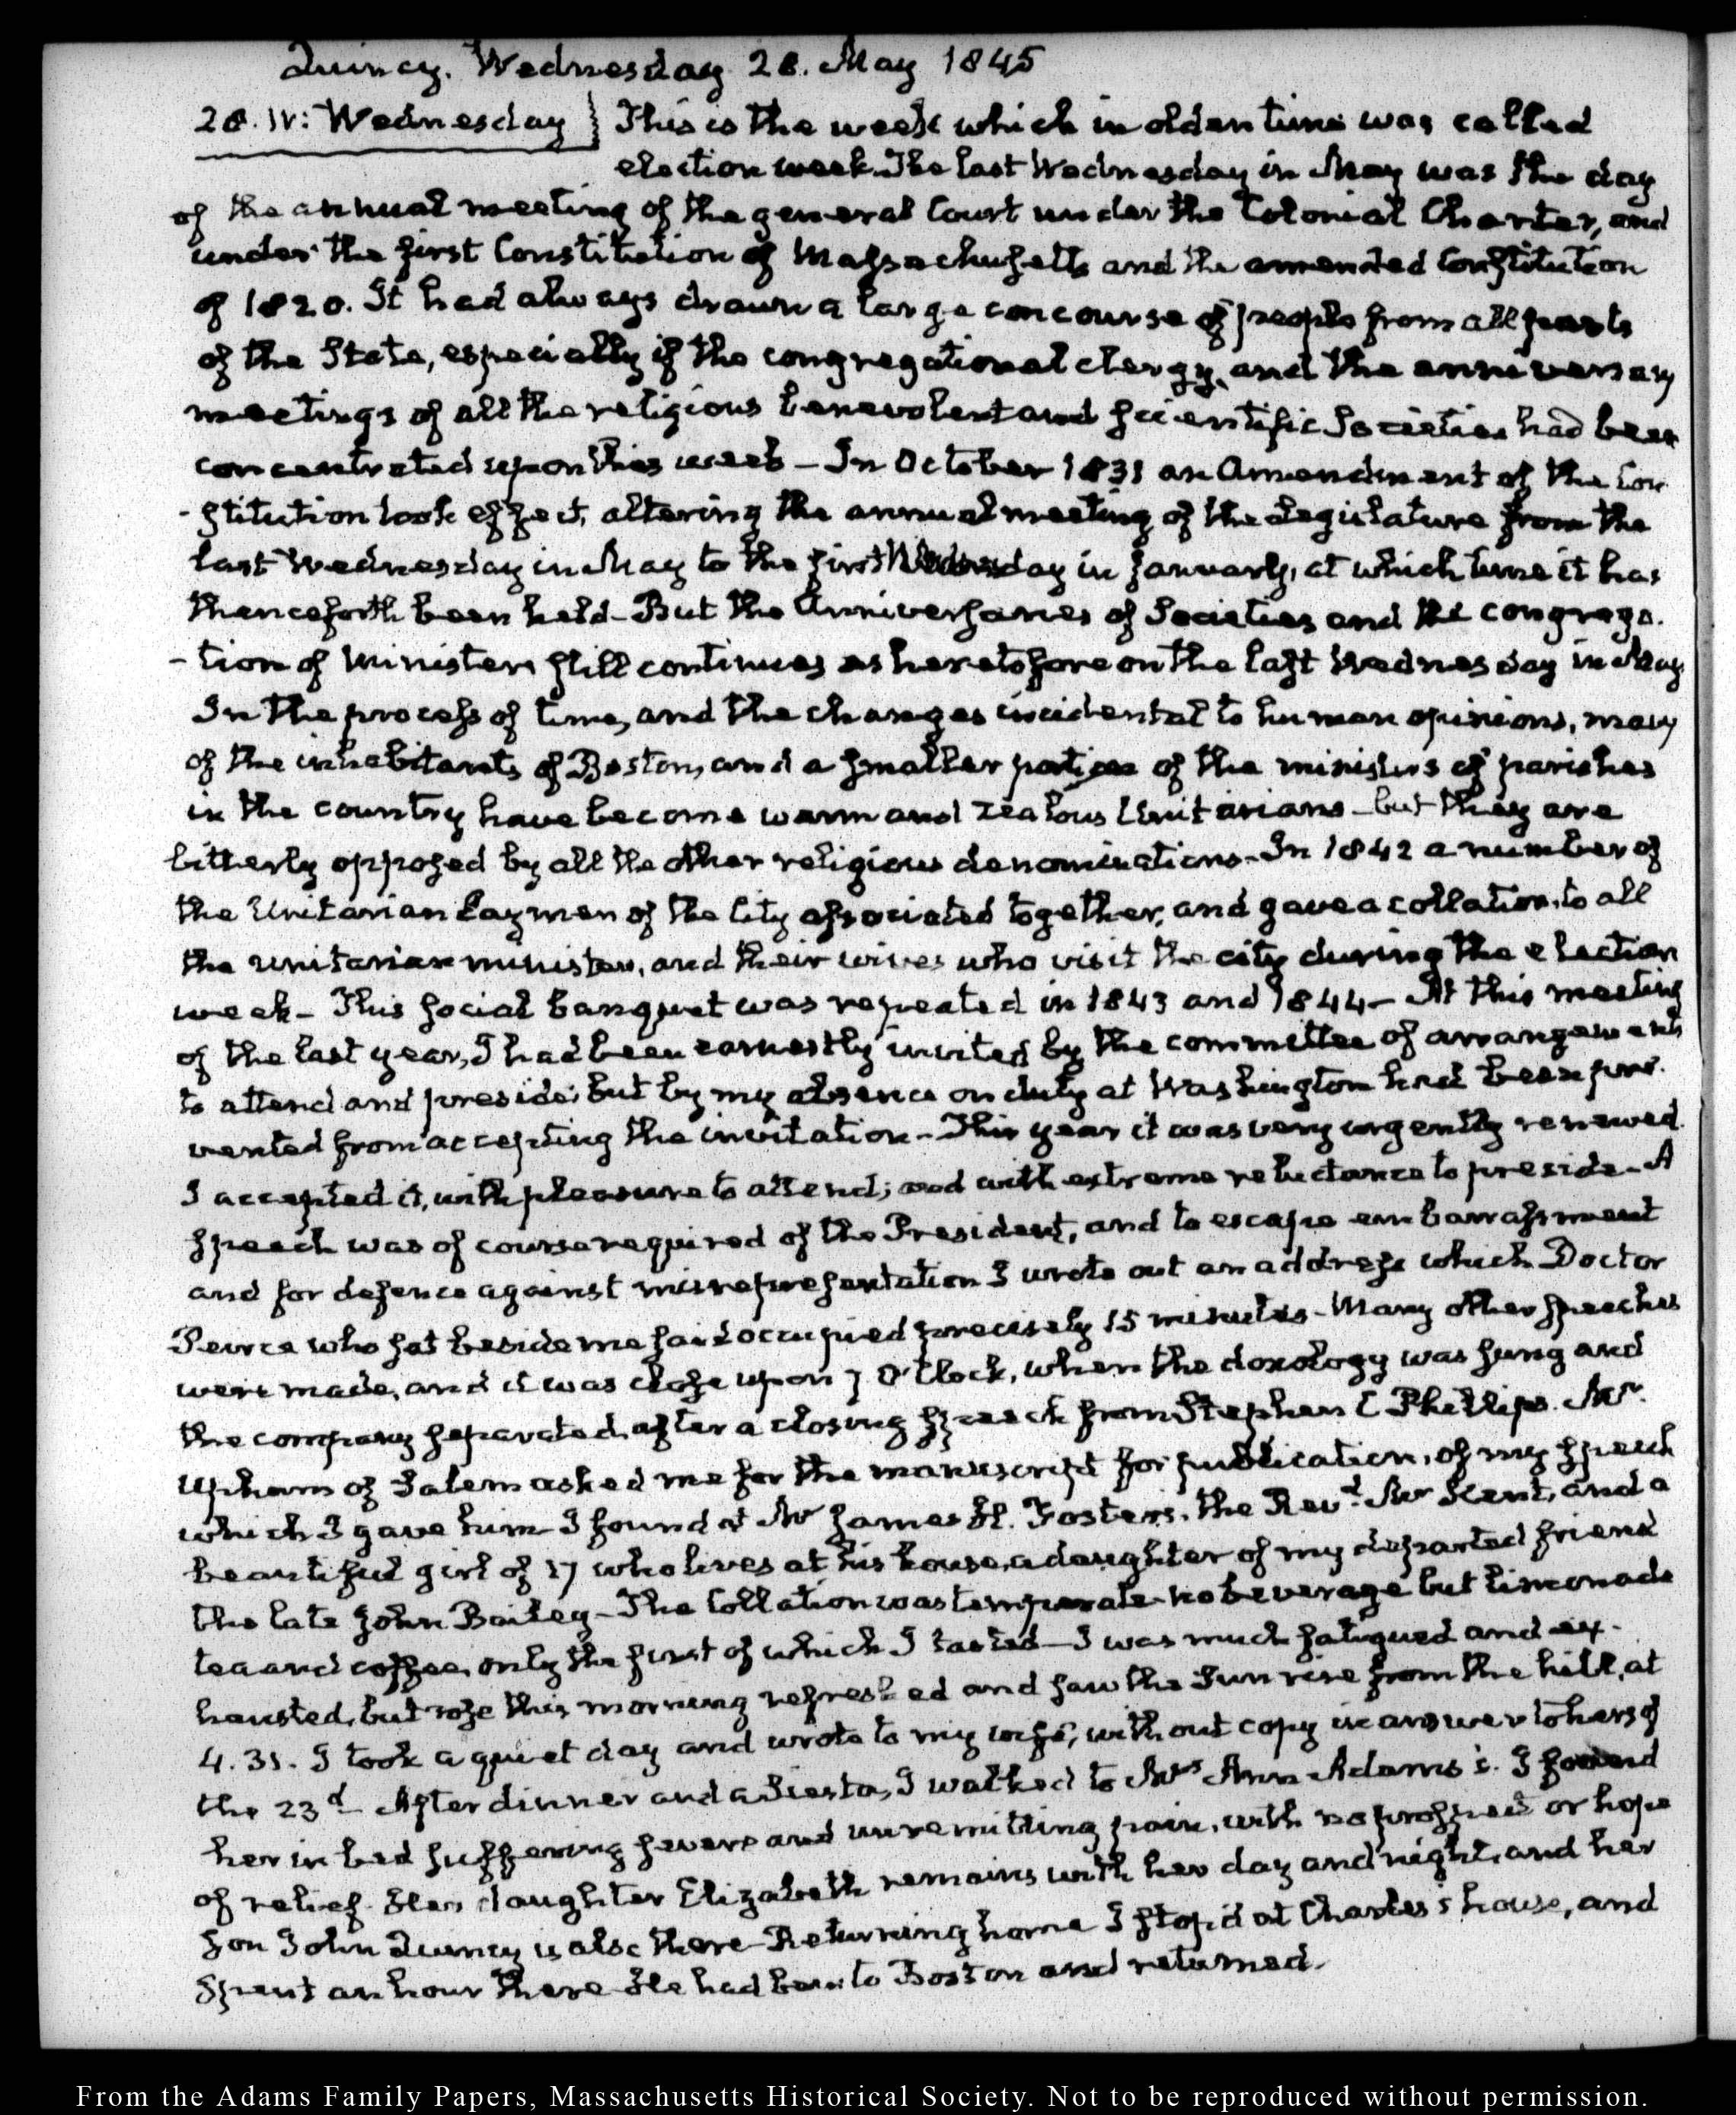 Quincy. Wednesday 28. May 1845
28. IV: Wednesday } This is the week which in olden time was called
election week. The last Wednesday in May was the day
of the annual meeting of the general Court under the Colonial Charter, and
under the first Constitution of Massachusetts and the amended Constitution
of 1820. It had always drawn a large concourse of people from all parts
of the State, especially of the congregational clergy, and the anniversary
meetings of all the religious benevolent and scientific Societies had been
concentrated upon this week - In October 1831 an Amendment of the Con
-stitution took effect, altering the annual meeting of the Legislature from the
last Wednesday in May to the first Wednesday in January, at which time it has
thenceforth been held - But the Anniversaries of Societies and the congrega.
-tion of Ministers still continues as heretofore on the last Wednesday in May
In the process of time, and the changes incidental to human opinions, many
of the inhabitants of Boston, and a smaller portion of the ministers of parishes
in the country have become warm and zealous Unitarians - but they are
bitterly opposed by all the other religious denominations - In 1842 a number of
the Unitarian Laymen of the City associated together, and gave a collation, to all
the Unitarian ministers, and their wives who visit the city during the election
week - This social banquet was repeated in 1843 and 1844 - At this meeting
of the last year, I had been earnestly invited by the committee of arrangements
to attend and preside; but by my absence on duty at Washington had been pre.
vented from accepting the invitation - This year it was very urgently renewed.
I accepted it, with pleasure to attend; and with extreme reluctance to preside - A
speech was of course required of the President, and to escape embarrassment
and for defence against misrepresentation I wrote out an address which Doctor
Peirce who sat beside me said occupied precisely 15 minutes - Many other speeches
were made, and it was close upon 7 O'Clock, when the doxology was sung and
the company separated, after a closing speech from Stephen C Phillips. Mr.
Upham of Salem asked me for the manuscript for publication, of my speech
which I gave him - I found at Mr James H. Foster's, the Revd. Mr Kent, and a
beautiful girl of 17 who lives at his house, a daughter of my departed friend
the late John Bailey - The Collation was temperate - no beverage but limonade
tea and coffee, only the first of which I tasted - I was much fatigued and ex-
hausted, but rose this morning refreshed and saw the Sun rise from the hill, at
4.31. I took a quiet day and wrote to my wife, without copy in answer to hers of
the 23d - After dinner and a Siesta, I walked to Mrs Ann Adams's. I found
her in bed suffering severe and unremitting pain, with no prospect or hope
of relief. Her daughter Elizabeth remains with her day and night, and her
Son John Quincy is also there - Returning home I stop'd at Charles's house, and
Spent an hour there - He had been to Boston and returned.
From the Adams Family Papers, Massachusetts Historical Society. Not to be reproduced without permission.